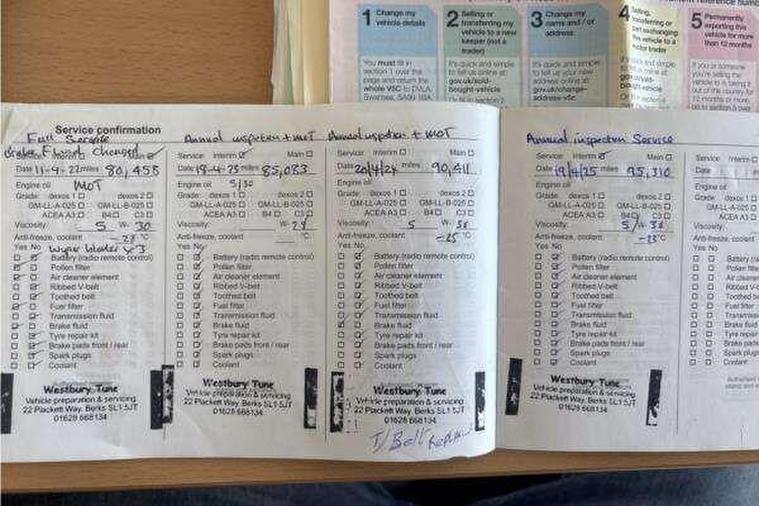 1 Change my vehicle details
You must fill in
section 1 over the
page and return the
whole V5C to DVLA,
2 Selling or
transferring my
vehicle to a new
keeper (not a
trader)
It's quick and simple
to tell us online at
gov.uk/sold-
bought-vehicle
3 Change my
name and / or
address
It's quick and simple
to tell us your new
address online at
gov.uk/change-
address-v5c
4 Selling,
transferring or
part exchanging
this vehicle to a
motor trader
5 Permanently
exporting this
vehicle for more
than 12 months
If you or someone
Service confirmation
Full Service
Brake Fluid Changed
Service: Interim Main
Date 11-4-22 miles 80,458
Engine oil MOT
Grade: dexos 1 dexos 2
GM-LL-A-025 GM-LL-B-025
ACEA A3 B4 C3
Viscosity: 5 W- 30
Anti-freeze, coolant °C
Yes No wiper blades
Battery (radio remote control)
Pollen filter
Air cleaner element
Ribbed V-belt
Toothed belt
Fuel filter
Transmission fluid
Brake fluid
Tyre repair kit
Brake pads front / rear
Spark plugs
Coolant
Westbury Tune
Vehicle preparation & servicing
22 Plackett Way, Berks SL1 5JT
01628 668134
Annual inspection + MOT
Service: Interim Main
Date 18-4-23 miles 85,083
Engine oil 5/30
Grade: dexos 1 dexos 2
GM-LL-A-025 GM-LL-B-025
ACEA A3 B4 C3
Viscosity: W-
Anti-freeze, coolant °C
Yes No
Battery (radio remote control)
Pollen filter
Air cleaner element
Ribbed V-belt
Toothed belt
Fuel filter
Transmission fluid
Brake fluid
Tyre repair kit
Brake pads front / rear
Spark plugs
Coolant
Westbury Tune
Vehicle preparation & servicing
22 Plackett Way, Berks SL1 5JT
01628 668134
Annual inspection + MOT
Service: Interim Main
Date 20/4/24 miles 90,411
Engine oil
Grade: dexos 1 dexos 2
GM-LL-A-025 GM-LL-B-025
ACEA A3 B4 C3
Viscosity: 5 W- 30
Anti-freeze, coolant -25 °C
Yes No
Battery (radio remote control)
Pollen filter
Air cleaner element
Ribbed V-belt
Toothed belt
Fuel filter
Transmission fluid
Brake fluid
Tyre repair kit
Brake pads front / rear
Spark plugs
Coolant
Westbury Tune
Vehicle preparation & servicing
22 Plackett Way, Berks SL1 5JT
01628 668134
T/Belt Replaced
Annual inspection Service
Service: Interim Main
Date 19/4/25 miles 95,310
Engine oil
Grade: dexos 1 dexos 2
GM-LL-A-025 GM-LL-B-025
ACEA A3 B4 C3
Viscosity: 5 W- 30
Anti-freeze, coolant °C
Yes No
Battery (radio remote control)
Pollen filter
Air cleaner element
Ribbed V-belt
Toothed belt
Fuel filter
Transmission fluid
Brake fluid
Tyre repair kit
Brake pads front / rear
Spark plugs
Coolant
Westbury Tune
Vehicle preparation & servicing
22 Plackett Way, Berks SL1 5JT
01628 668134
Service: Interim
Date
Engine oil
Grade: dexos 1
GM-LL-A-025
ACEA A3
Viscosity:
Anti-freeze, coolant
Yes No